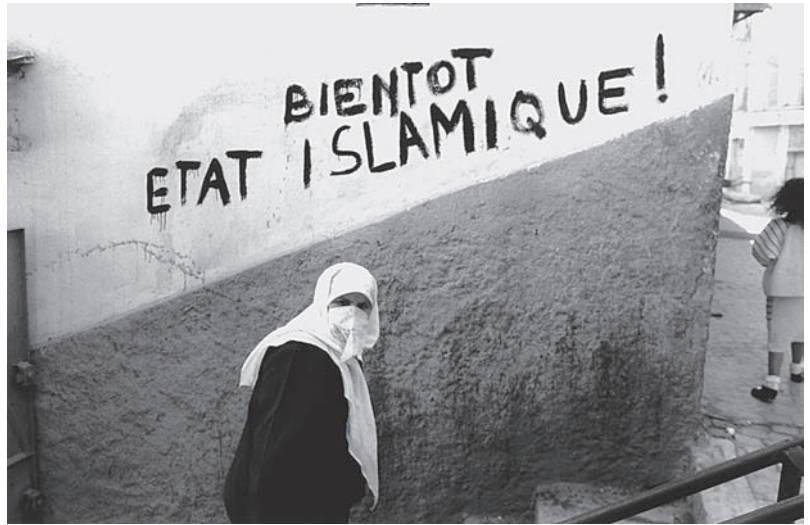 BIENTOT
ETAT ISLAMIQUE !